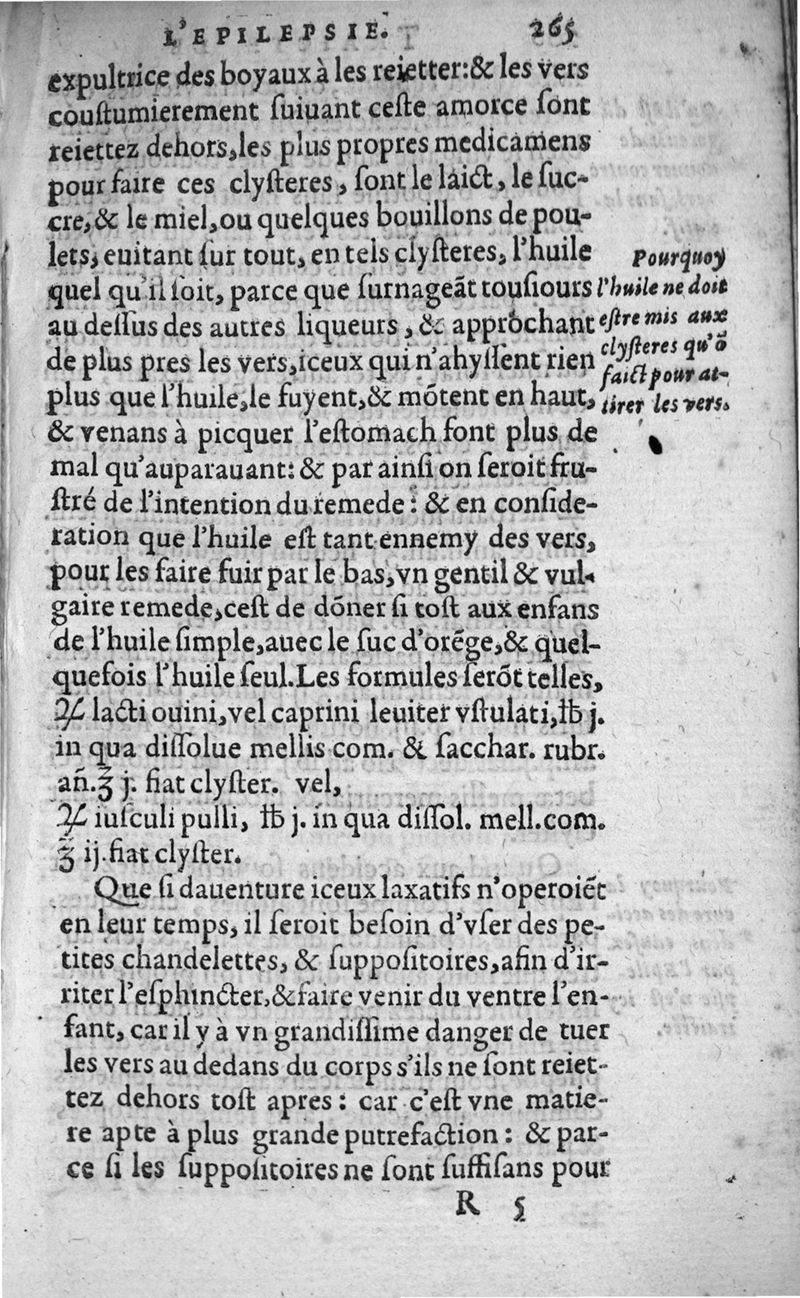 L'EPILEPSIE. 265
expultrice des boyaux à les reietter:& les vers
couſtumierement ſuiuant ceſte amorce ſont
reiettez dehors,les plus propres medicamens
pour faire ces clyſteres, ſont le laict, le ſuc-
cre,& le miel,ou quelques bouillons de pou-
lets, euitant ſur tout, en tels clyſteres, l'huile
quel qu'il ſoit, parce que ſurnageãt touſiours
au deſſus des autres liqueurs, & approchant
de plus pres les vers,iceux qui n'ahyſſent rien
plus que l'huile,le fuyent,& mõtent en haut,
& venans à picquer l'eſtomach font plus de
mal qu'auparauant: & par ainſi on ſeroit fru-
ſtré de l'intention du remede: & en conſide-
ration que l'huile eſt tant ennemy des vers,
pour les faire fuir par le bas,vn gentil & vul-
gaire remede,ceſt de dõner ſi toſt aux enfans
de l'huile ſimple,auec le ſuc d'orẽge,& quel-
quefois l'huile ſeul.Les formules ſerõt telles,
℞ lacti ouini,vel caprini leuiter vſtulati,℔ j.
in qua diſſolue mellis com. & ſacchar. rubr.
añ.℥ j. fiat clyſter. vel,
℞ iuſculi pulli, ℔ j. in qua diſſol. mell.com.
℥ ij.fiat clyſter.
Que ſi dauenture iceux laxatifs n'operoiẽt
en leur temps, il ſeroit beſoin d'vſer des pe-
tites chandelettes, & ſuppoſitoires,afin d'ir-
riter l'eſphincter,& faire venir du ventre l'en-
fant, car il y à vn grandiſſime danger de tuer
les vers au dedans du corps s'ils ne ſont reiet-
tez dehors toſt apres: car c'eſt vne matie-
re apte à plus grande putrefaction: & par-
ce ſi les ſuppoſitoires ne ſont ſuffiſans pour
R 5
Pourquoy
l'huile ne doit
eſtre mis aux
clyſteres qu'õ
faict pour at-
tirer les vers.